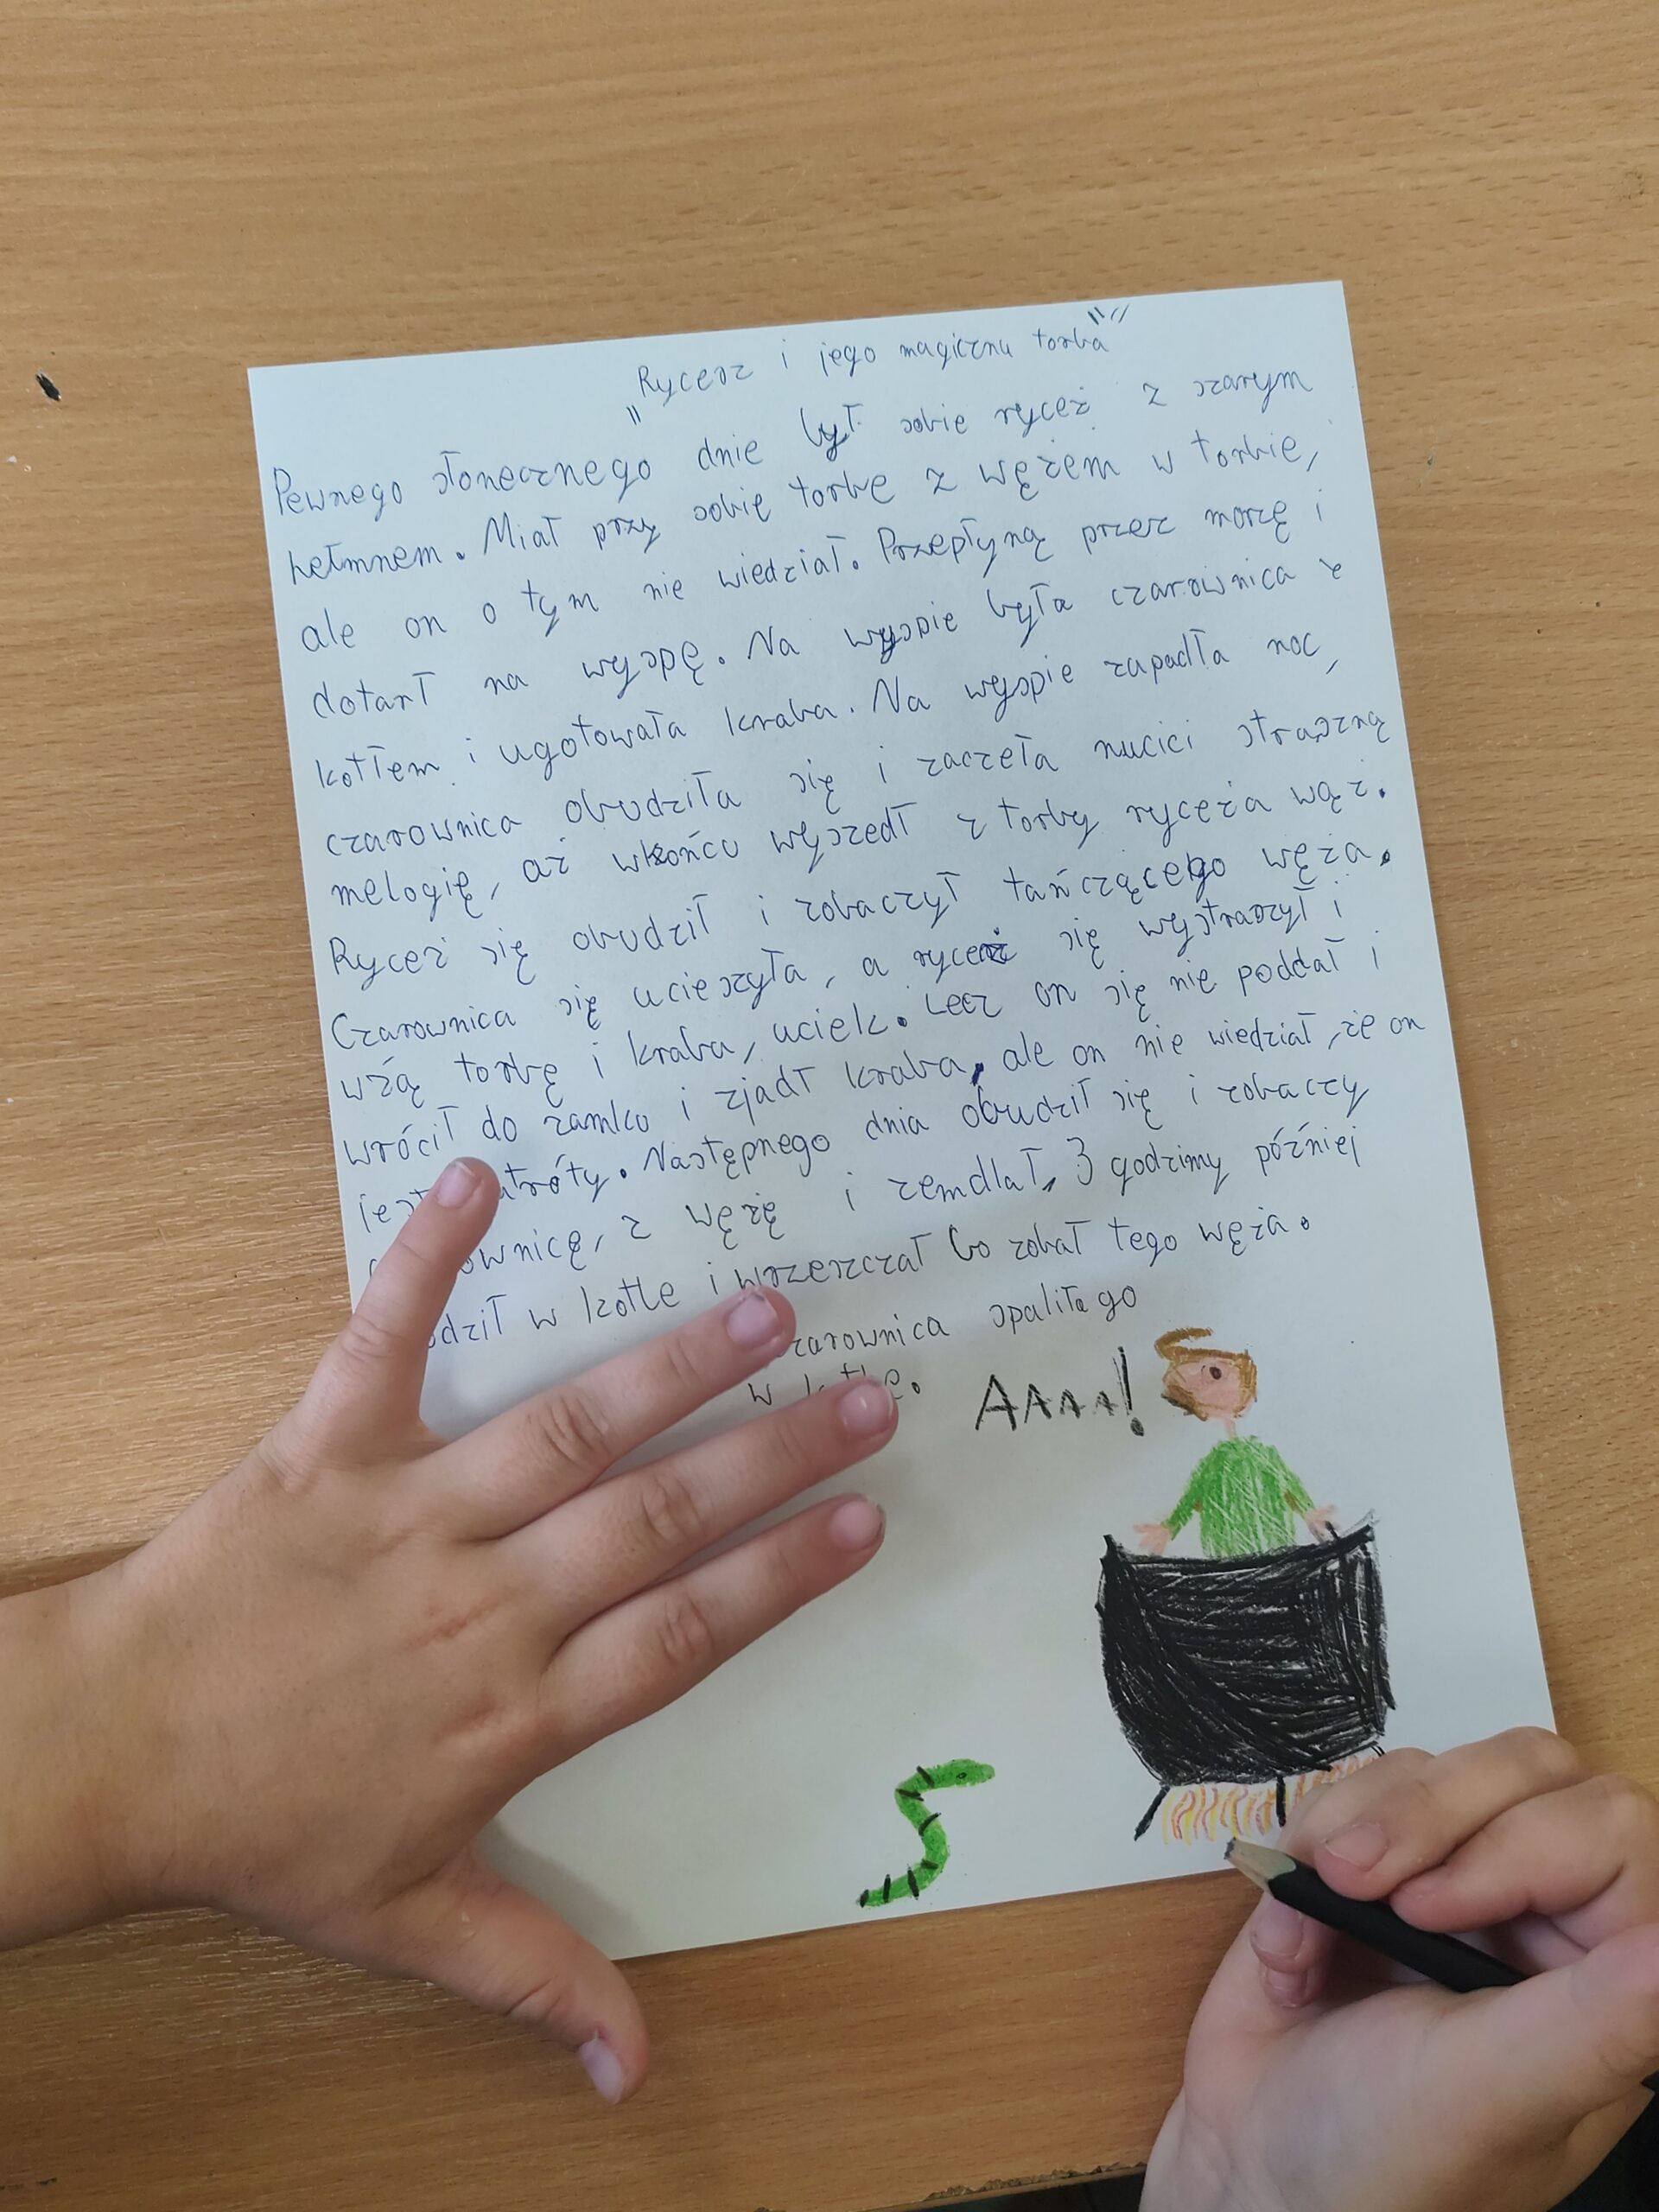 "Rycerz i jego magiczna torba"
Pewnego słonecznego dnie był sobie ryceż z szarym
hełmnem. Miał przy sobię torbę z wężem w torbie,
ale on o tym nie wiedział. Przepłyną przez morzę i
dotarł na wyspę. Na wyspie była czarownica z
kotłem i ugotowała kraba. Na wyspie zapadła noc,
czarownica obudziła się i zaczeła nucici straszną
melogię, aż wkońcu wyszedł z torby ryceża wąż.
Ryceż się obudził i zobaczył tańczącego węża.
Czarownica się ucieszyła, a ryceż się wystraszył i
wżą torbę i kraba, uciek. Lecz on się nie poddał i
wrócił do zamku i zjadł kraba, ale on nie wiedział, że on
jest truty. Następnego dnia obudził się i zobaczy
ownicę, z wężę i zemdlał, 3 godzimy później
dził w kotle i wrzeszczał bo zobał tego węża.
zarownica spaliła go
w
AAAA!